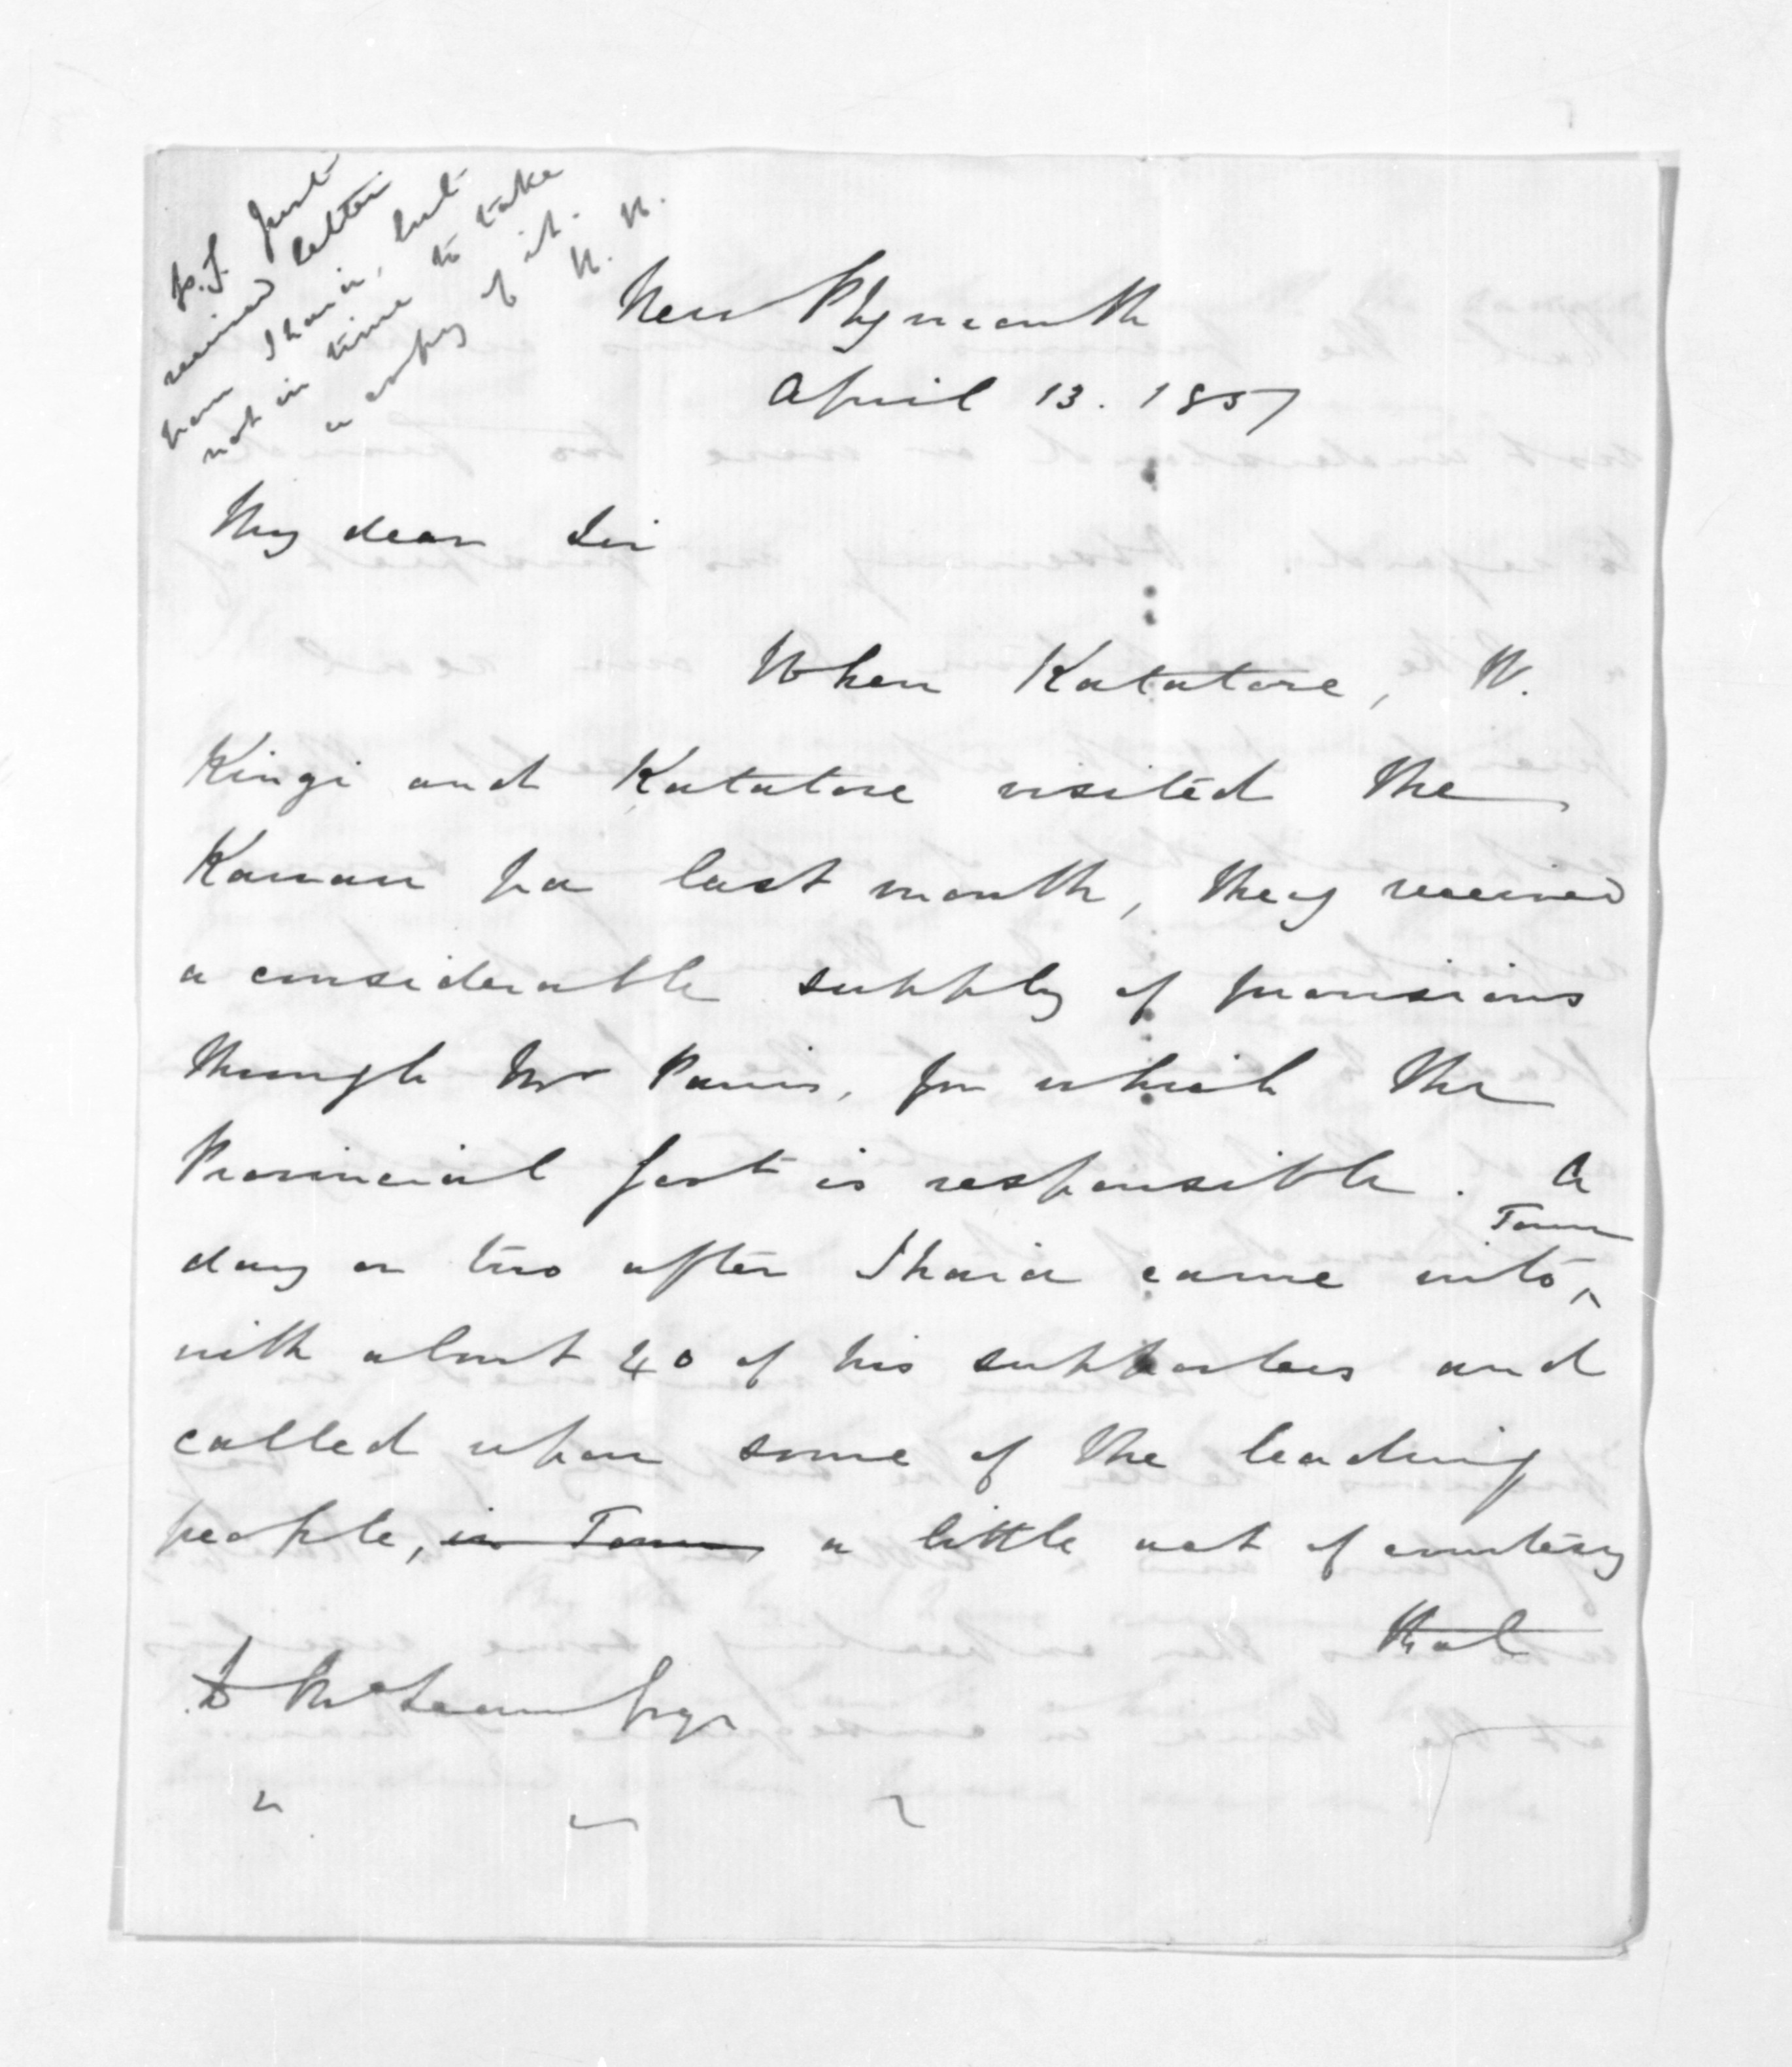 p.S. Just
received letter
from Ihaia, but
not in time to take
a copy of it.
H. H.
New Plymouth
April 13. 1857
My dear Sir
When Katatore, W.
Kingi and Katatore visited the
Kawau pa last month, they received
a considerable supply of provisions
through Mr Parris, for which the
Provincial Govt is responsible. A
day or two after Ihaia came into Town
with about 40 of his supporters and
called upon some of the leading
people, in Town a little act of courtesy
that
D McLean Esqr